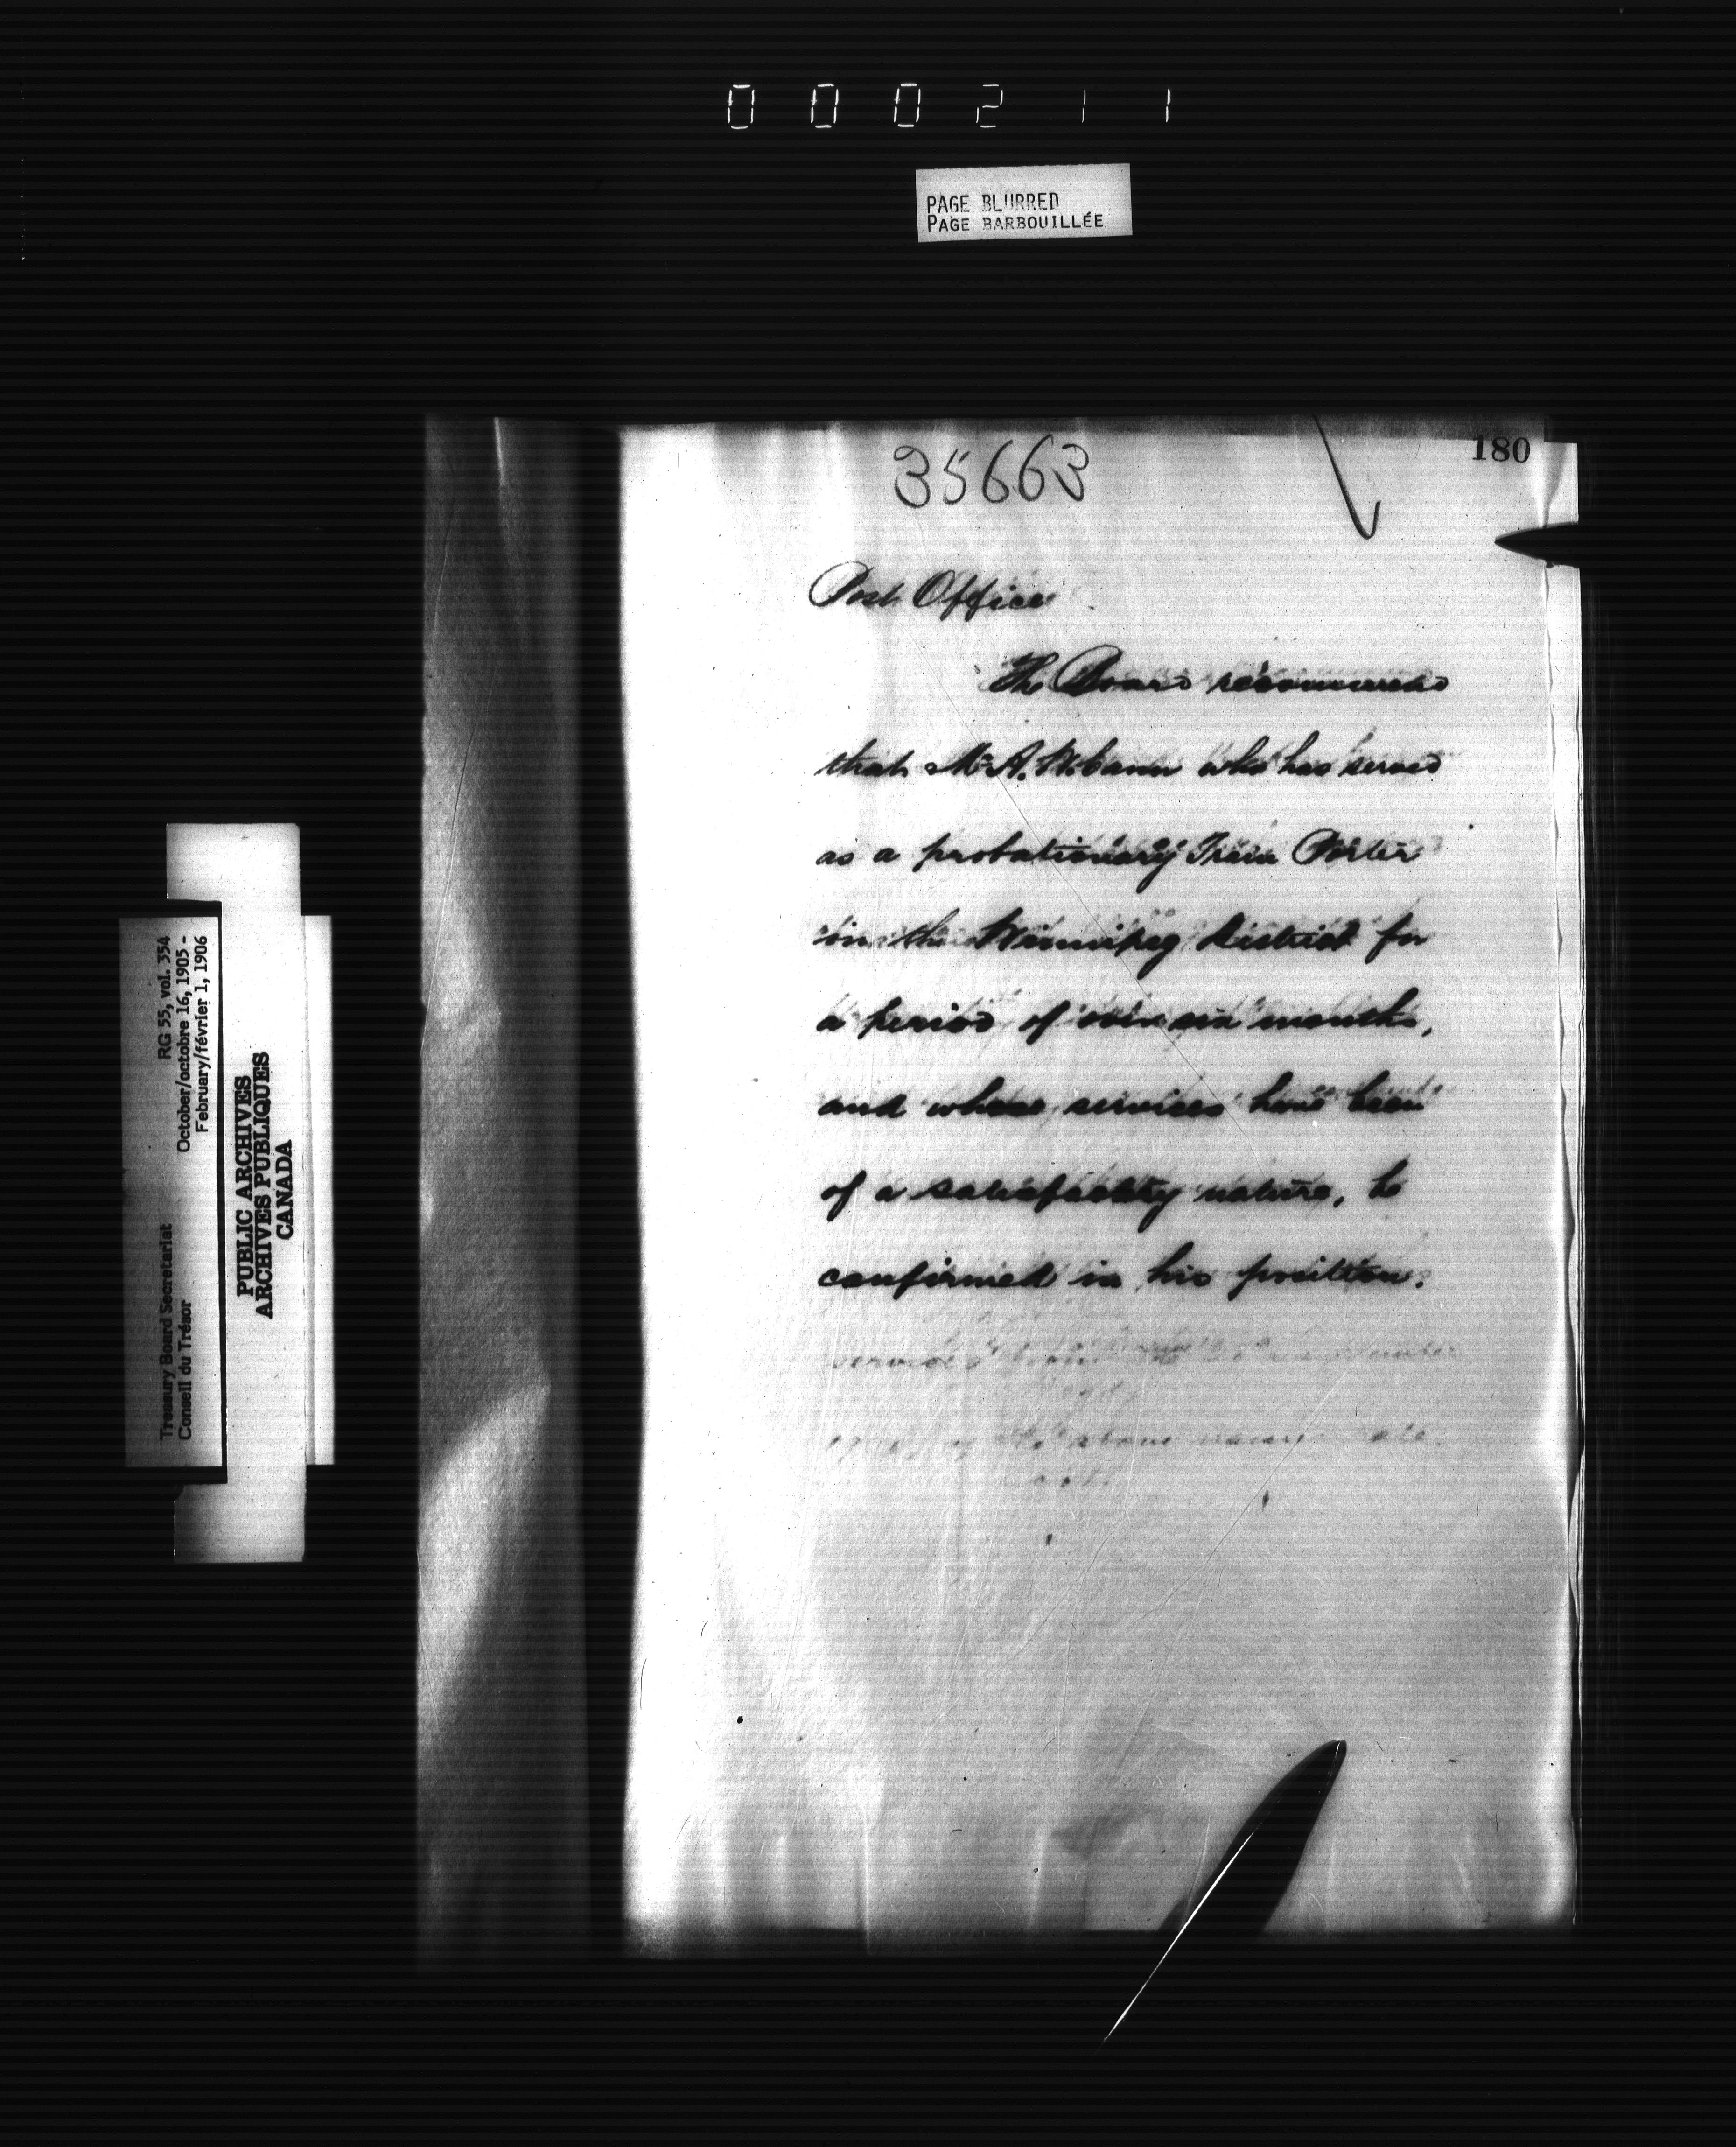 000211
PAGE BLURRED
PAGE BARBOUILLÉE
180
35663
Post Office
The Board recommends
that Mr A. W. Cann who has served
as a probationary Train Porter
in the Winnipeg District for
a period of over six months,
and whose services have been
of a satisfactory nature, be
confirmed in his position.
services
above
Treasury Board Secretariat RG 55, vol. 354
Conseil du Trésor October/octobre 16, 1905 -
February/février 1, 1906
PUBLIC ARCHIVES
ARCHIVES PUBLIQUES
CANADA